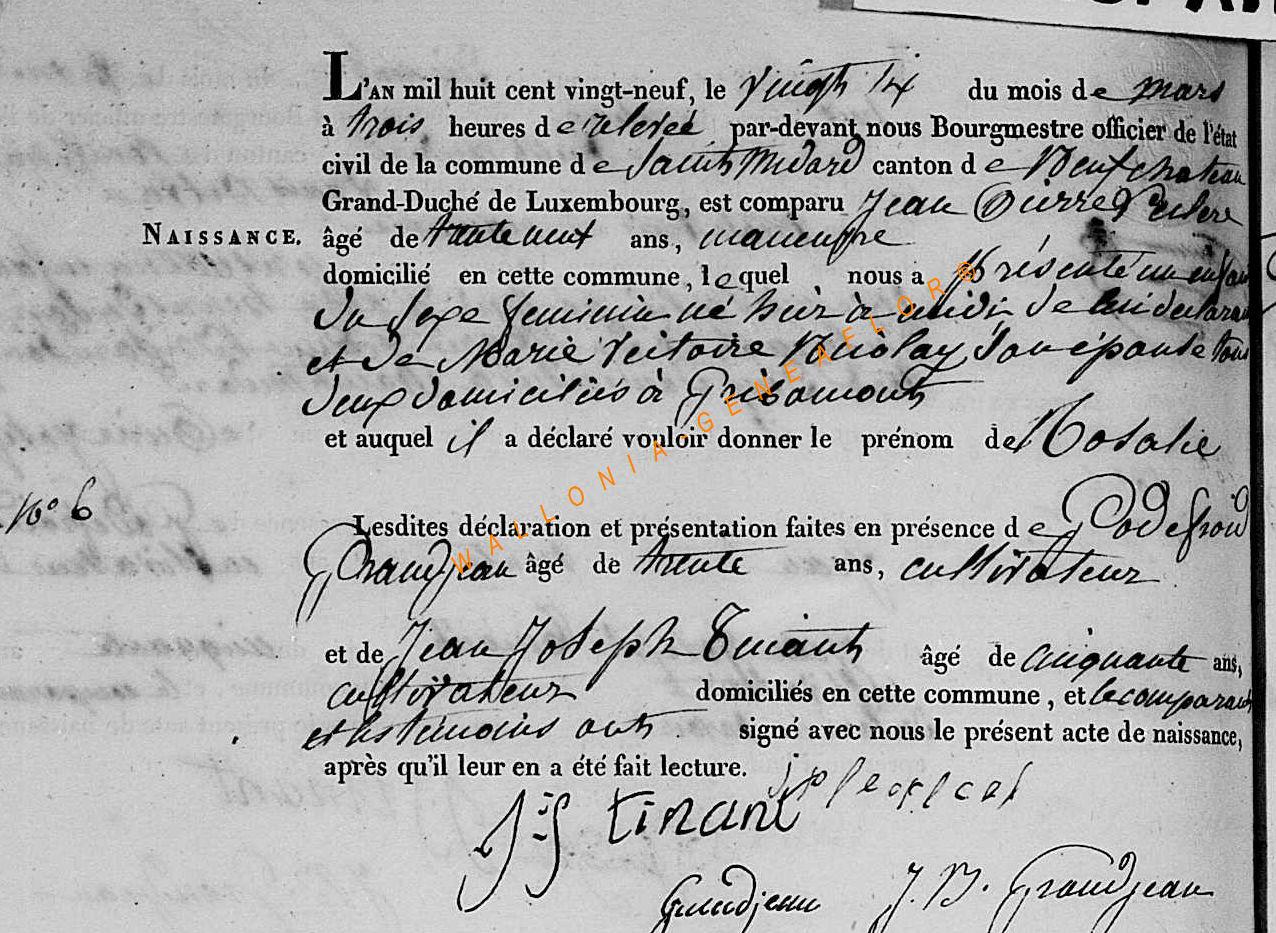 L'AN mil huit cent vingt-neuf, le vingt six du mois de mars
à trois heures de relevée par-devant nous Bourgmestre officier de l'état
civil de la commune de Saint Médard canton de Neufchateau
Grand-Duché de Luxembourg, est comparu Jean Pierre
NAISSANCE. âgé de trente neuf ans, manoeuvre
domicilié en cette commune, lequel nous a présenté un enfant
du sexe feminin né hier à midi de lui declarant
et de Marie Victoire Nicolay, son épouse tous
deux domiciliés à Grisamont
et auquel il a déclaré vouloir donner le prénom de Rosalie
N° 6
Lesdites déclaration et présentation faites en présence de Godefroid
Grandjean âgé de trente ans, cultivateur
et de Jean Joseph Tinant âgé de cinquante ans,
cultivateur domiciliés en cette commune, et le comparant
et les témoins ont signé avec nous le présent acte de naissance,
après qu'il leur en a été fait lecture.
J: J tinant
Grandjean J. B. Grandjean
WALLONIA-GENEAFLOR®